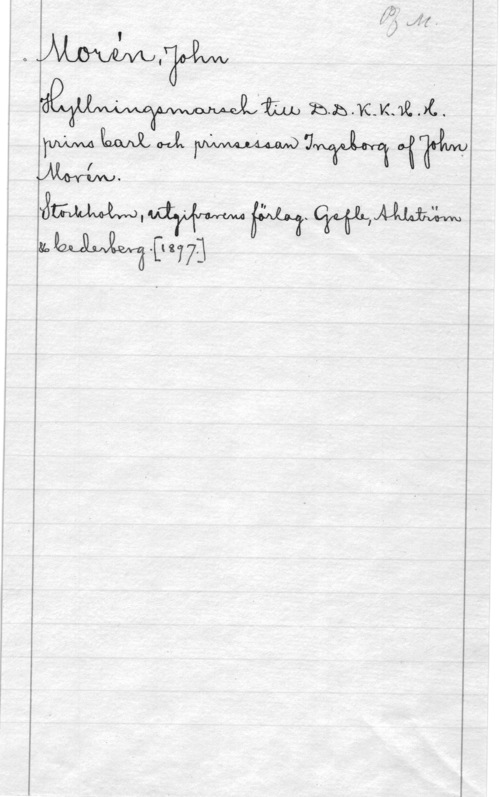 Of M.
Morén, John
Hyllningsmarsch till D.D.K.K.H.H.
prins Carl och prinsessan Ingeborg af John
Morén.
Stockholm, utgifvarens förlag. Gefle, Ahlström
& Cederberg. [1897.]